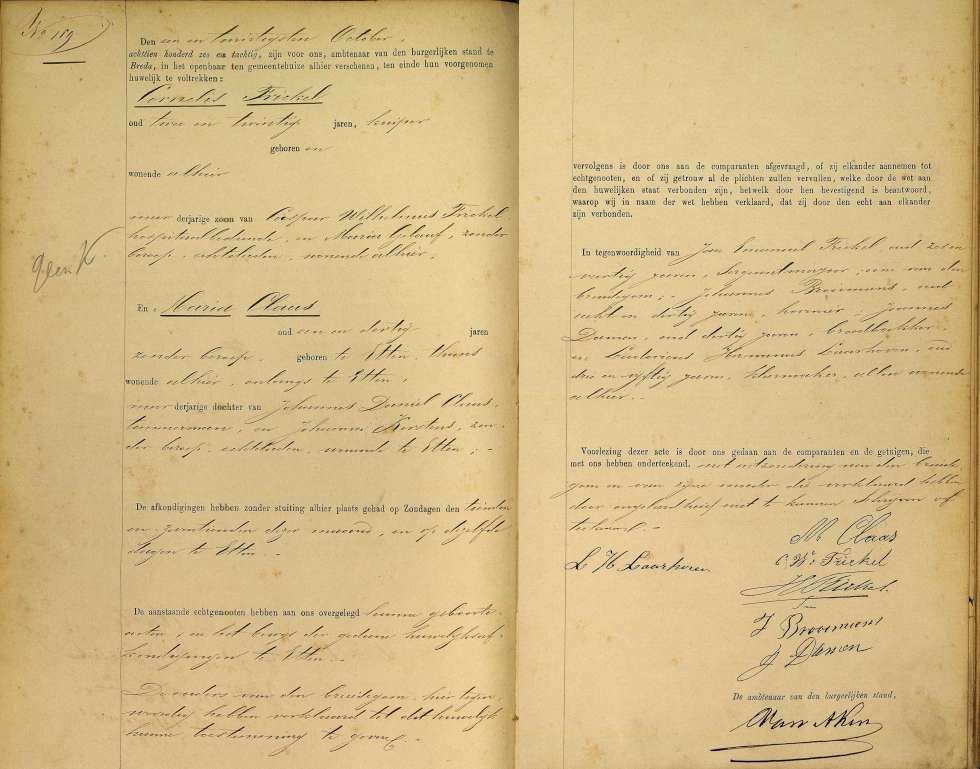 No 189
Den een en twintigsten October,
achttien honderd zes en tachtig, zijn voor ons, ambtenaar van den burgerlijken stand te
Breda, in het openbaar ten gemeentehuize alhier verschenen, ten einde hun voorgenomen
huwelijk te voltrekken:
Cornelis Frickel
oud twee en twintig jaren, kuiper
geboren en
wonende alhier
meerderjarige zoon van Caspar Wilhelmus Frickel
hospitaalbediende, en Maria , zonder
beroep, echtelieden, wonende alhier.
geen K
En Maria Claas
oud een en dertig jaren
zonder beroep, geboren te Etten, thans
wonende alhier, onlangs te Etten,
meerderjarige dochter van Johannes Daniel Claas
timmerman, en Johanna Kerstens, zon-
der beroep, echtelieden, wonende te Etten,
De afkondigingen hebben zonder stuiting alhier plaats gehad op Zondagen den tienden
en zeventienden dezer maand, en op dezelfde
dagen te Etten.
De aanstaande echtgenooten hebben aan ons overgelegd hunne geboorte-
acten, en het bewijs der gedane huwelijksaf-
kondigingen te Etten.
De ouders van den bruidegom, hier tegen-
woordig hebben verklaard tot dit huwelijk
hunne toestemming te geven.
vervolgens is door ons aan de comparanten afgevraagd, of zij elkander aannemen tot
echtgenooten, en of zij getrouw al de plichten zullen vervullen, welke door de wet aan
den huwelijken staat verbonden zijn, hetwelk door hen bevestigend is beantwoord,
waarop wij in naam der wet hebben verklaard, dat zij door den echt aan elkander
zijn verbonden.
In tegenwoordigheid van Jan Emanuel Frickel oud zeven
veertig jaren, Sergeantmajoor, oom van den
bruidegom, Johannes Broermans, oud
acht en dertig jaren, , Joannes
Damen, oud dertig jaren, broodbakker
en Ludovicus Hermanus Laarhoven, oud
drie en vijftig jaren, kleermaker, allen wonende
alhier.
Voorlezing dezer acte is door ons gedaan aan de comparanten en de getuigen, die
met ons hebben onderteekend, met uitzondering van den bruide-
gom en van zijne moeder die verklaard hebben
door ongeleerdheid niet te kunnen schrijven of
teekenen.
M Claas
L H Laarhoven
C. W. Frickel
Frickel
J Broermans
J Damen
De ambtenaar van den burgerlijken stand,
Van Aken